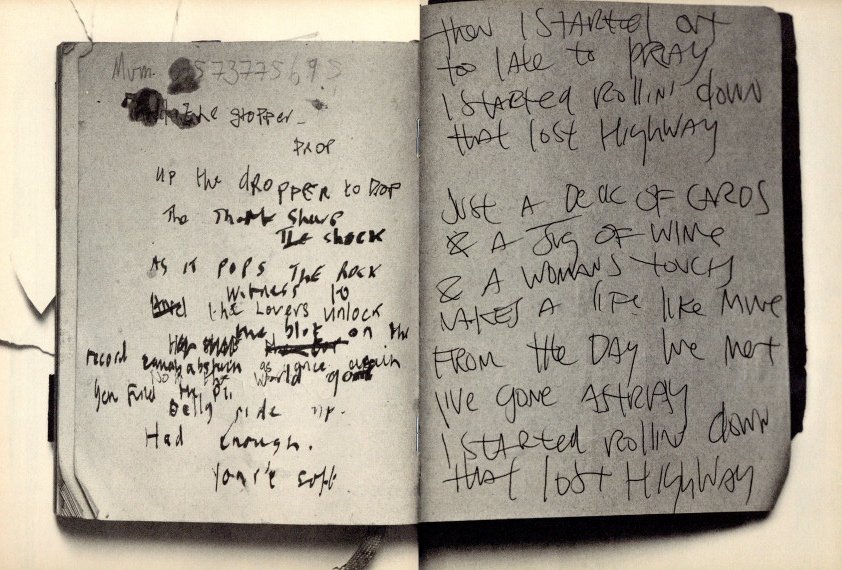 Mum 573775695
the stopper
DROP
up the dROPPER to DROP
The
The shock
As it POPS THE ROCK
witness to
And the Lovers Unlock
the blot on the
record as once again
the world
you find
Belly side up.
Had Enough.
You're soft
then I STARTED out
too lAte to PRAY
I STARTED rollin' down
that lost HIGHWAY
JUST A DECK OF CARDS
& A JUG OF WINE
& A WOMANS touch
MAKES A lIFE like Mine
FROM the DAY we met
I'VE GONE ASTRAY
I STARTED rollin' down
that lost HIGHWAY